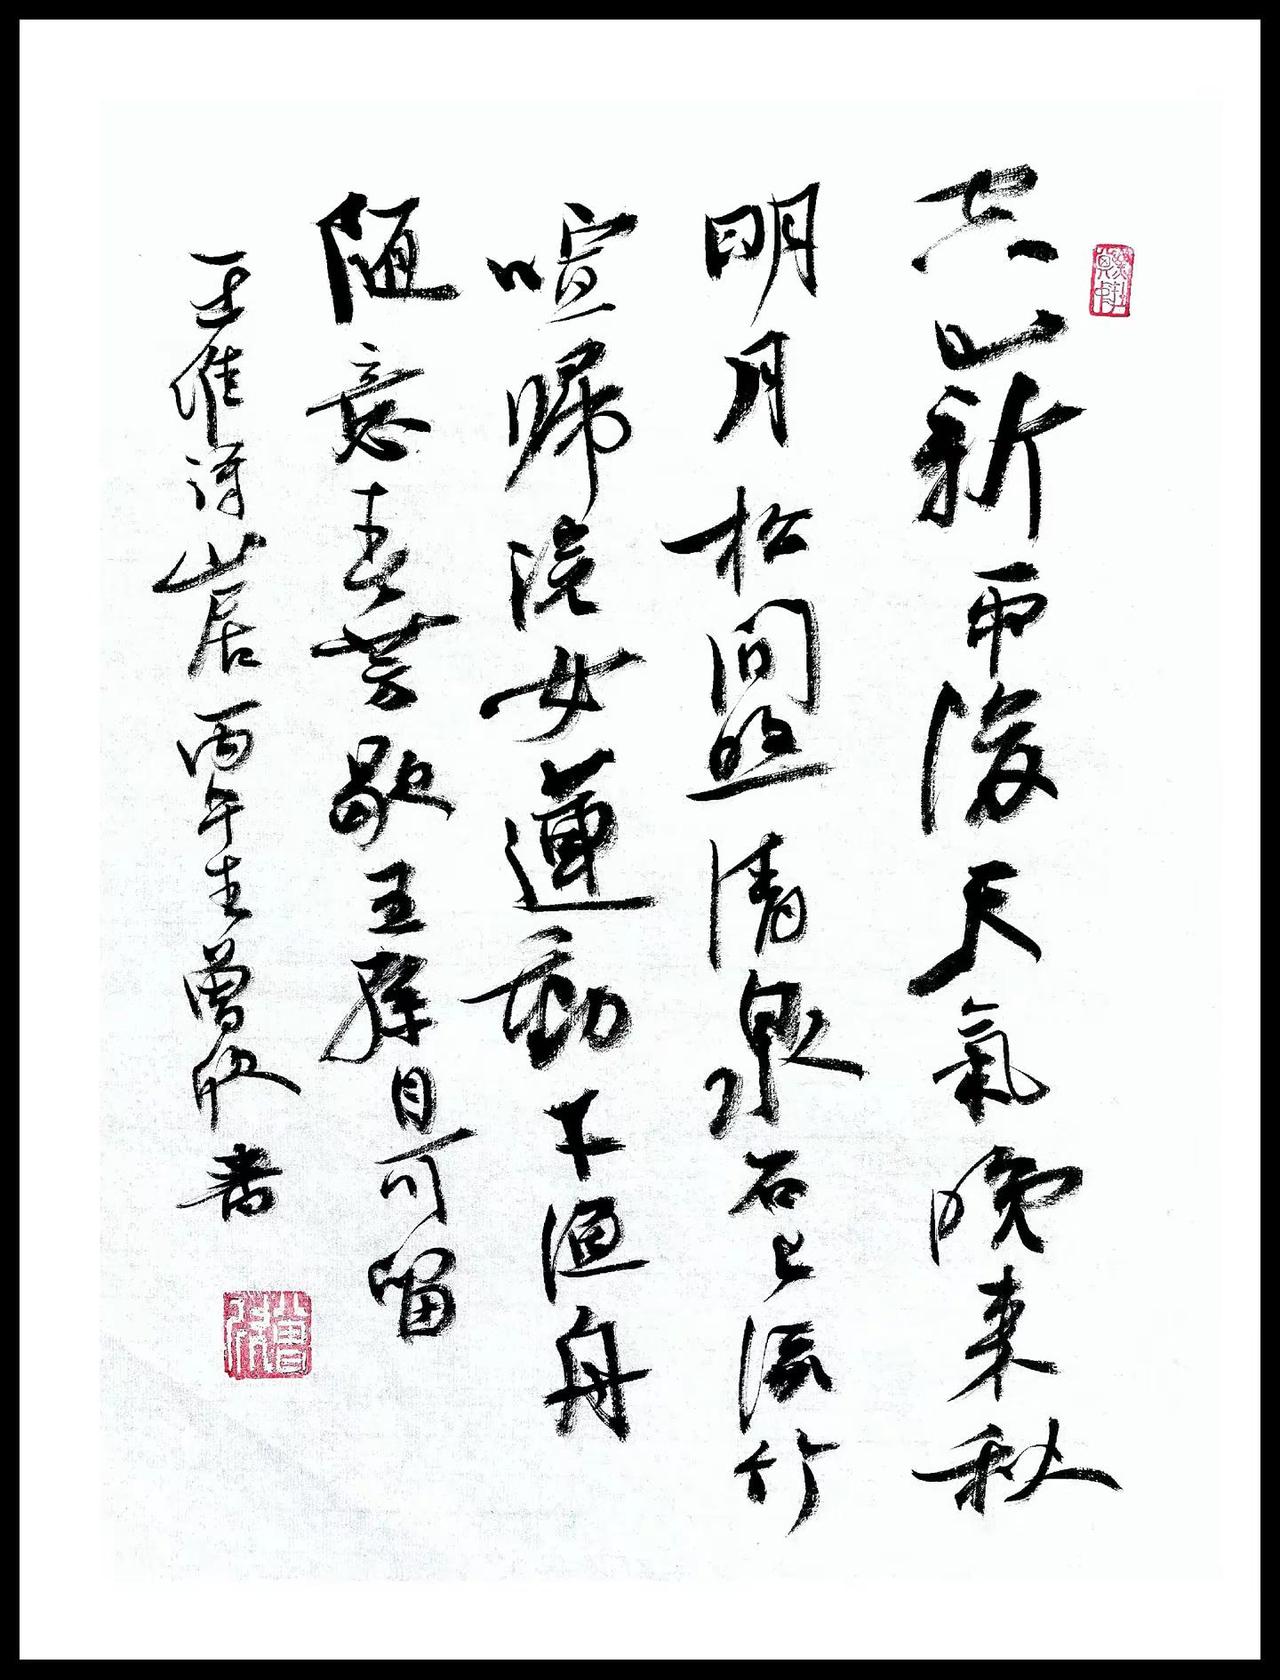 空山新雨後天氣晚來秋
明月松間照清泉石上流竹
喧歸浣女蓮動下漁舟
隨意春芳歇王孫自可留
王維詩山居丙午年曾
書